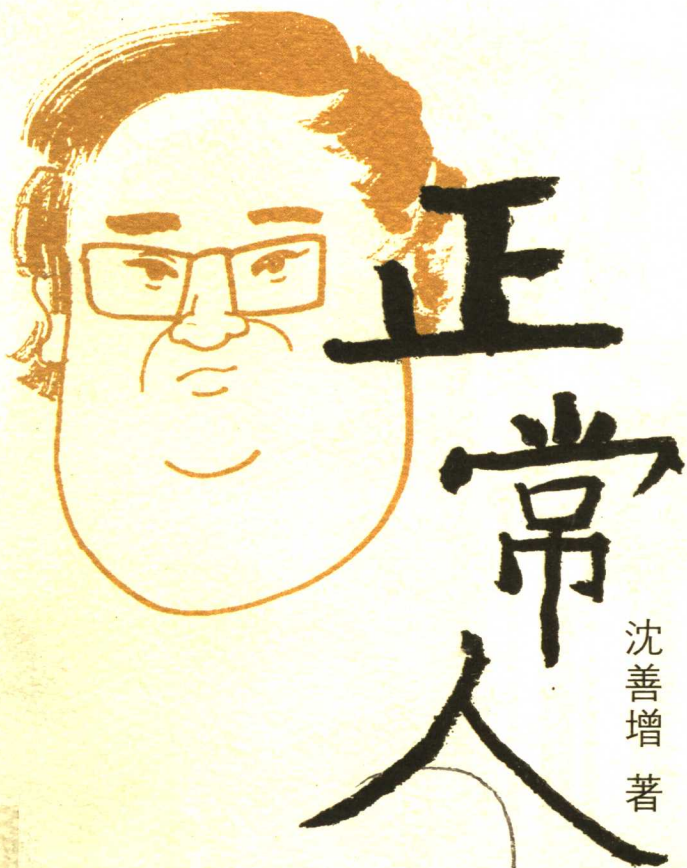 正常人
沈善增 著